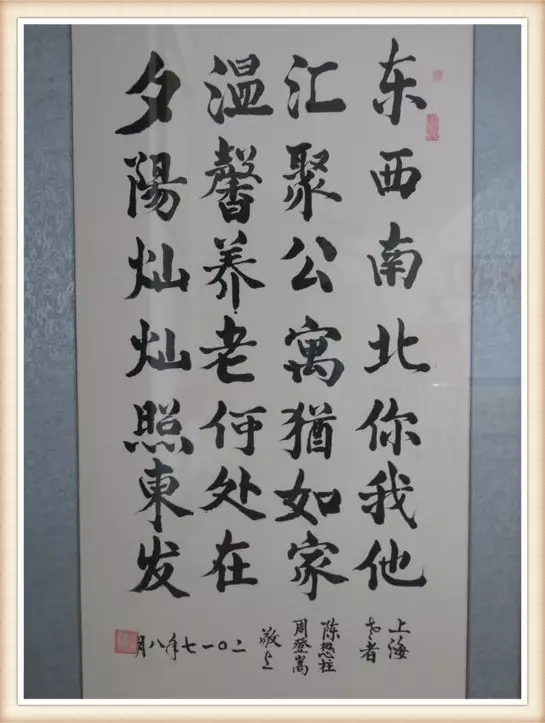 东西南北你我他
汇聚公寓犹如家
温馨养老何处在
夕陽灿灿照東发
上海
老者
陈懋柱
周登嵩
敬上
二〇一七年八月